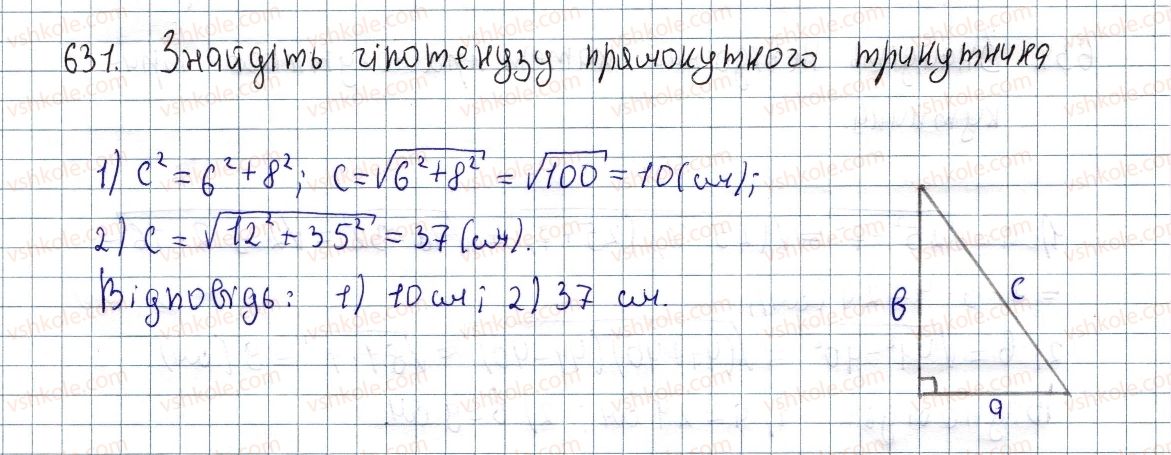 631. Знайдіть гіпотенузу прямокутного трикутника
1) c² = 6² + 8²; c = √(6² + 8²) = √100 = 10 (см);
2) c = √(12² + 35²) = 37 (см).
Відповідь: 1) 10 см; 2) 37 см.
в
c
a
vshkole.com